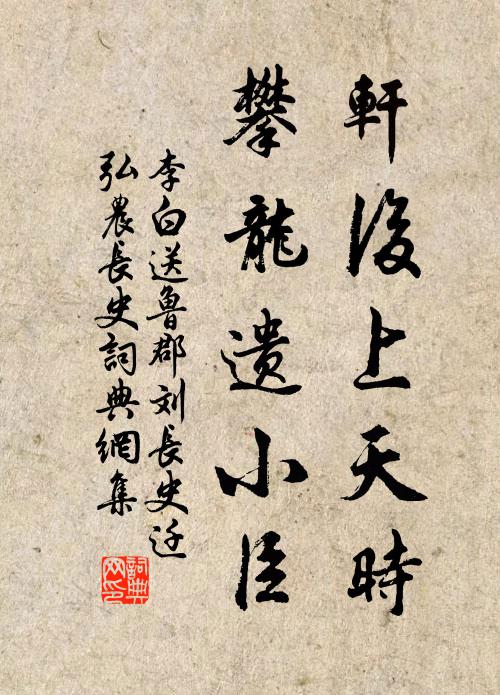 軒後上天時
攀龍遺小臣
李白送魯郡刘長史迁
弘農長史詞典網集
詞典
网印